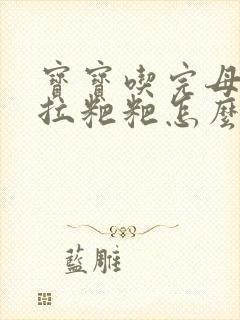 寶寶喫完母
拉粑粑怎麼
藍雕